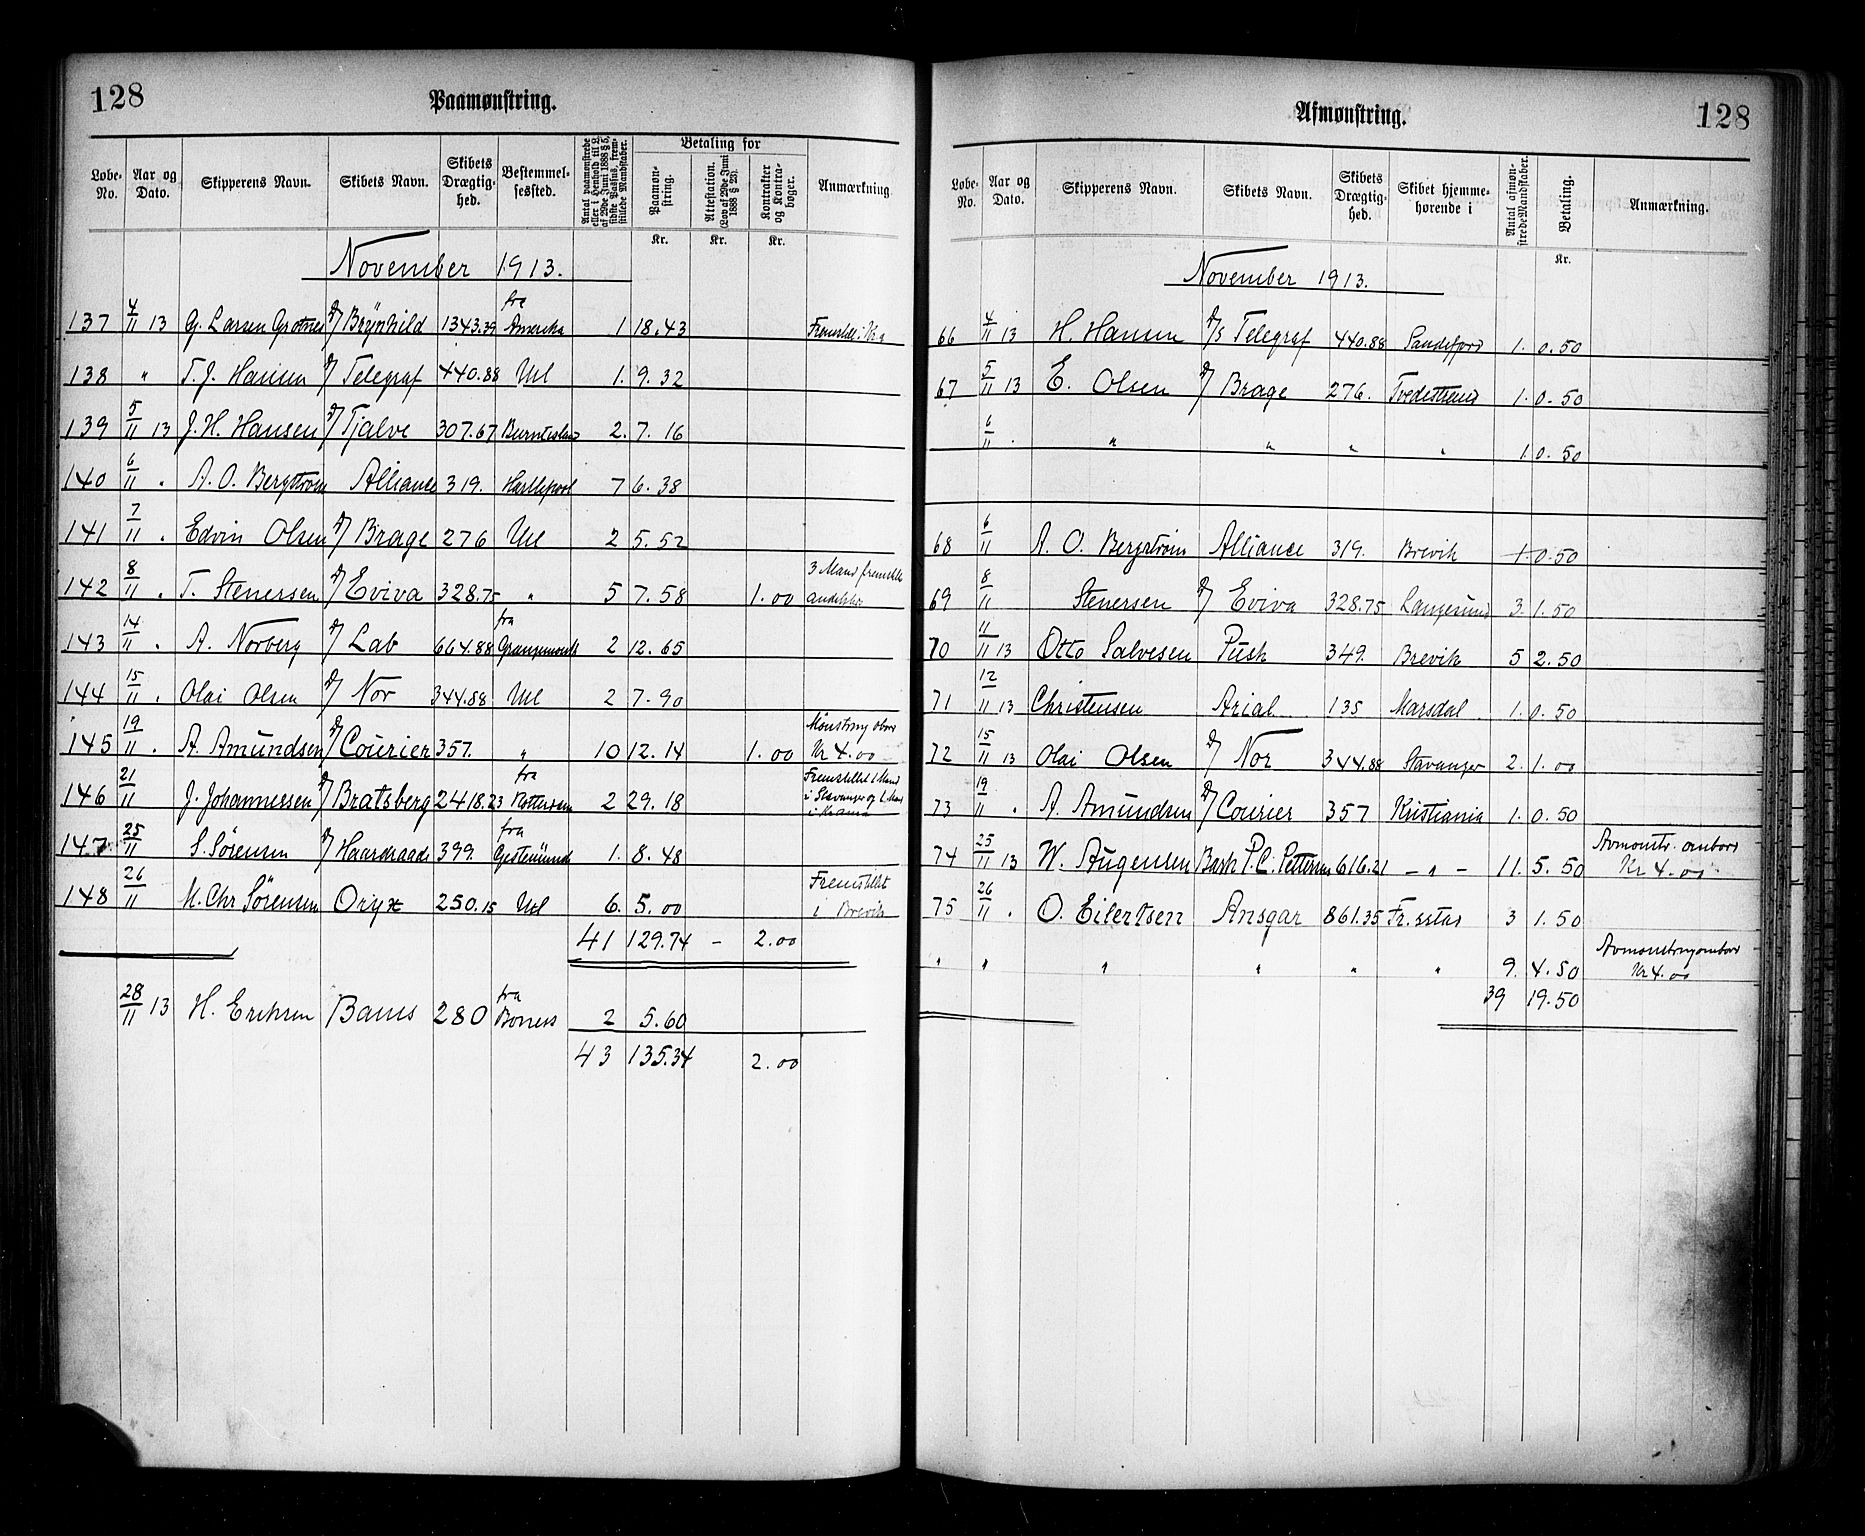 128 Paamønstring.
Løbe-No. Aar og Dato. Skipperens Navn. Skibets Navn. Skibets Drægtighed. Bestemmelsessted. Antal paamønstrede eller i Henhold til L. af 29de Juni 1888 § 5, sidste Passus, fremstillede Mandskaber. Betaling for Paamønstring. Attestation. (Lov af 29de Juni 1888 § 23). Kontrakter og Kontrabøger. Anmærkning
Kr. Kr. Kr.
November 1913.
137 4/11 13 G. Larsen Grotnes D/ Brynhild 1343.39 fra Amerika 1 18.43
138 " T. J. Hansen D/ Telegraf 440.88 Ul 1. 9.32
139 5/11 13 J. H. Hansen D/ Tjalve 307.67 Burntisland 2. 7.16
140 6/11 . A. O. Bergstrøm Alliance 319. Hartlepool 7 6.38
141 7/11 . Edvin Olsen D/ Brage 276 Ul 2 5.52
142 8/11 . T. Stenersen D/ Eviva 328.75 " 5 7.58 1.00 3 Mand
143 14/11 . A. Norberg D/ Lab 664.88 fra Grangemouth 2 12.65
144 15/11 . Olai Olsen D/ Nor 344.88 Ul 2 7.90
145 19/11 . A. Amundsen D/ Courier 357. " 10 12.14 1.00 Mønstring obors Kr 4.00
146 21/11 J. Johannessen D/ Bratsberg 2418.23 fra Rotterdam 2 29.18 Fremstillet 1 Mand i Stavanger og 1 Mand i Krania
147 25/11 S. Sørensen D/ Haardraade 399. fra Gestemünde 1. 8.48
148 26/11 M. Chr Sørensen Oryx 250.15 Ul 6. 5.00 Fremstillet i Brevik
41 129.74 - 2.00
28/11 13 H. Eriksen Bams 280 fra Boness 2 5.60
43 135.34 2.00
Afmønstring. 128
Løbe-No. Aar og Dato. Skipperens Navn. Skibets Navn. Skibets Drægtighed. Skibet hjemmehørende i Antal afmønstrede Mandskaber. Betaling. Anmærkning.
Kr.
November 1913.
66 4/11 13 H. Hansen D/s Telegraf 440.88 Sandefjord 1. 0.50
67 5/11 13 E. Olsen D/ Brage 276. Tvedestrand 1. 0.50
6/11 . " " " " 1 0.50
68 6/11 A. O. Bergstrøm Alliance 319. Brevik 1 0.50
69 8/11 Stenersen D/ Eviva 328.75 Langesund 3. 1.50
70 11/11 13 Otto Salvesen Pusk 349. Brevik 5 2.50
71 12/11 13 Christensen Arial 135 Marsdal 1. 0.50
72 15/11 13 Olai Olsen D/ Nor 344.88 Stavanger 2. 1.00
73 19/11 . A. Amundsen D/ Courier 357 Kristiania 1. 0.50
74 25/11 13 W. Augensen Bark P. C. Petterson 616.21 - " - 11. 5.50 Avmønstr. ombord Kr 4.00
75 26/11 . O. Eilertsen Ansgar 861.35 Fr.sstad 3 1.50
" " " " " " 9. 4.50 Avmønstring ombord Kr 4.00
39 19.50